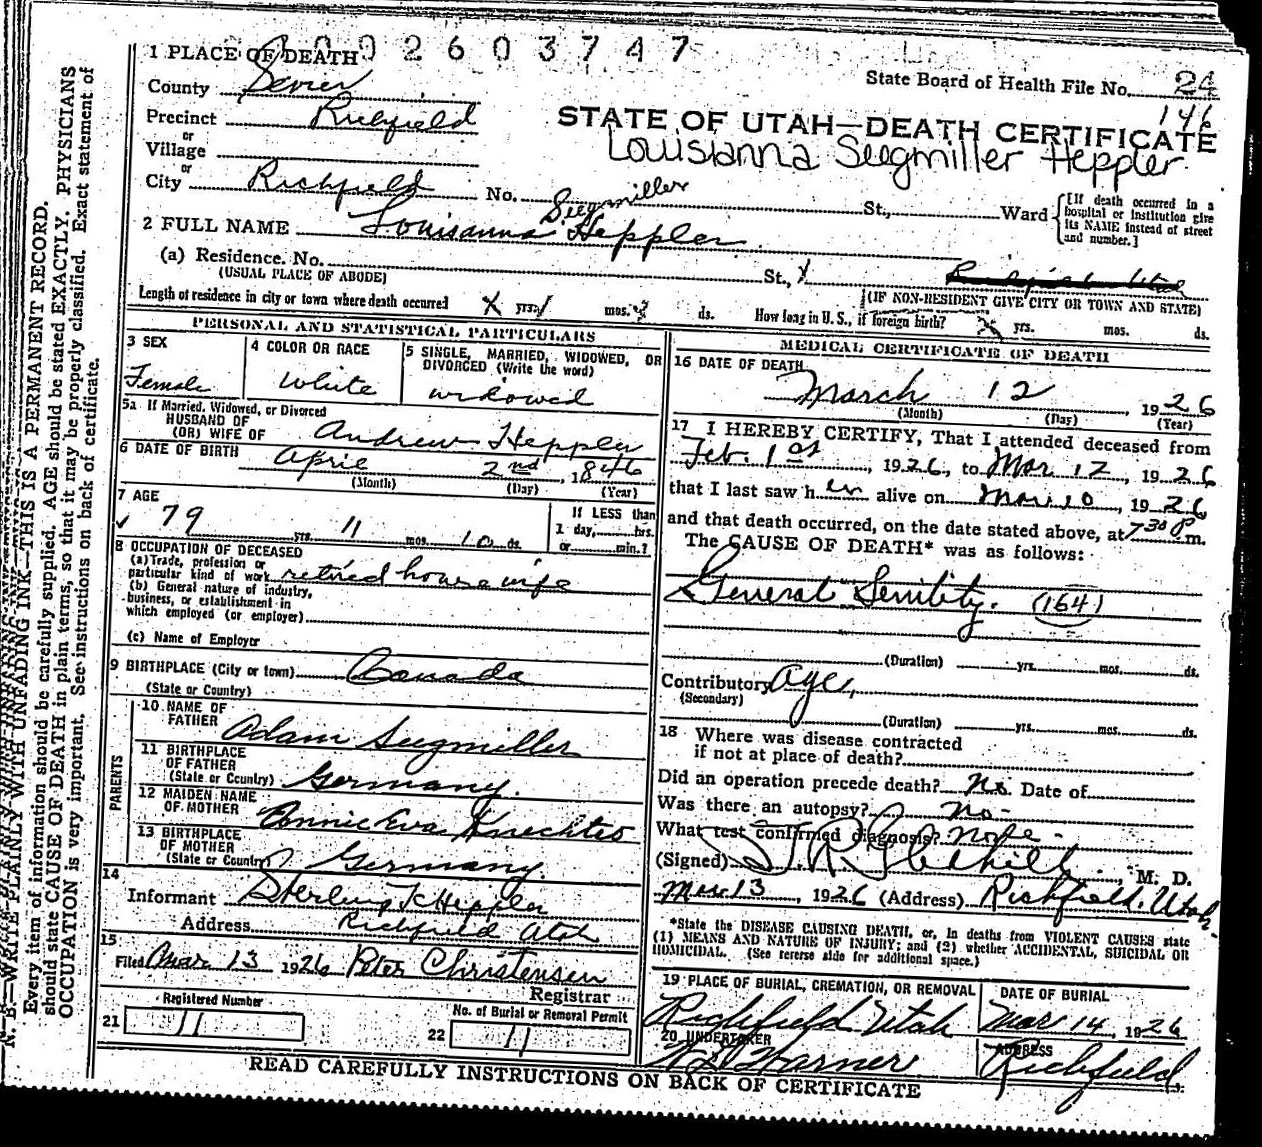 0 0 2 6 0 3 7 4 7
1 PLACE OF DEATH
State Board of Health File No. 24
County Sevier
146
Precinct Richfield
STATE OF UTAH—DEATH CERTIFICATE
or
Village
Louisianna Seegmiller Heppler
or
City Richfield No. St., Ward
[If death occurred in a hospital or institution give its NAME instead of street and number.]
Seegmiller
2 FULL NAME Louisanna Heppler
(a) Residence. No. St.,
(USUAL PLACE OF ABODE)
(IF NON-RESIDENT GIVE CITY OR TOWN AND STATE)
Length of residence in city or town where death occurred X yrs. mos. ds. How long in U. S., if foreign birth? X yrs. mos. ds.
PERSONAL AND STATISTICAL PARTICULARS
3 SEX
Female
4 COLOR OR RACE
White
5 SINGLE, MARRIED, WIDOWED, OR
DIVORCED (Write the word)
widowed
5a If Married, Widowed, or Divorced
HUSBAND OF
(OR) WIFE OF Andrew Heppler
6 DATE OF BIRTH April 2nd, 1846
(Month) (Day) (Year)
7 AGE
79 yrs. 11 mos. 10 ds.
If LESS than
1 day, hrs.
or min.?
8 OCCUPATION OF DECEASED
(a) Trade, profession or
particular kind of work retired housewife
(b) General nature of industry,
business, or establishment in
which employed (or employer)
(c) Name of Employer
9 BIRTHPLACE (City or town) Canada
(State or Country)
PARENTS
10 NAME OF
FATHER Adam Seegmiller
11 BIRTHPLACE
OF FATHER
(State or Country) Germany.
12 MAIDEN NAME
OF MOTHER Annie Eva Knechtes
13 BIRTHPLACE
OF MOTHER
(State or Country) Germany.
14
Informant Sterling K Heppler
Address Richfield Utah
15
Filed Mar 13 1926 Peter Christensen
Registrar
Registered Number
21 11
No. of Burial or Removal Permit
22 11
MEDICAL CERTIFICATE OF DEATH
16 DATE OF DEATH
March 12, 1926
(Month) (Day) (Year)
17 I HEREBY CERTIFY, That I attended deceased from
Feb. 1st, 1926, to Mar 12, 1926
that I last saw her alive on Mar 10, 1926
and that death occurred, on the date stated above, at 7 30 P. m.
The CAUSE OF DEATH* was as follows:
General Senility. (164)
(Duration) yrs. mos. ds.
Contributory Age,
(Secondary)
(Duration) yrs. mos. ds.
18 Where was disease contracted
if not at place of death?
Did an operation precede death? No. Date of
Was there an autopsy? No-
What test confirmed diagnosis? None -
(Signed) M. D.
Mar. 13, 1926 (Address) Richfield, Utah.
*State the DISEASE CAUSING DEATH, or, in deaths from VIOLENT CAUSES state
(1) MEANS AND NATURE OF INJURY; and (2) whether ACCIDENTAL, SUICIDAL OR
HOMICIDAL. (See reverse side for additional space.)
19 PLACE OF BURIAL, CREMATION, OR REMOVAL
Richfield Utah
DATE OF BURIAL
Mar 14, 1926
20 UNDERTAKER
Warner
ADDRESS
Richfield,
READ CAREFULLY INSTRUCTIONS ON BACK OF CERTIFICATE
N. B.—WRITE PLAINLY WITH UNFADING INK—THIS IS A PERMANENT RECORD.
Every item of information should be carefully supplied. AGE should be stated EXACTLY. PHYSICIANS
should state CAUSE OF DEATH in plain terms, so that it may be properly classified. Exact statement of
OCCUPATION is very important. See instructions on back of certificate.